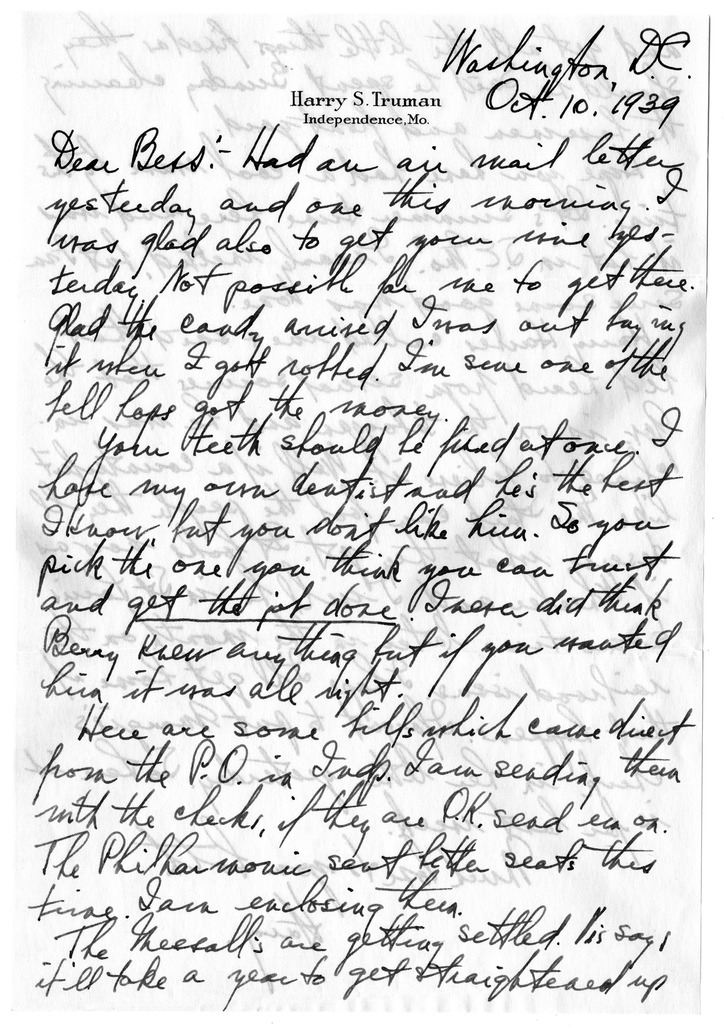 Washington, D.C.
Harry S. Truman
Oct. 10, 1939
Independence, Mo.
Dear Bess:- Had an air mail letter
yesterday and one this morning. I
was glad also to get your wire yes-
terday. Not possible for me to get there.
Glad the candy arrived I was out buying
it when I got robbed. I'm sure one of the
bell hops got the money.
Your teeth should be fixed at once. I
have my own dentist and he's the best
I know, but you don't like him. So you
pick the one you think you can trust
and get the job done. I never did think
Berry knew anything but if you wanted
him it was all right.
Here are some bills which came direct
from the P.O. in Indp. I am sending them
with the checks, if they are O.K. send em on.
The Philharmonic sent better seats this
time. I am enclosing them.
The are getting settled. says
it'll take a year to get straightened up